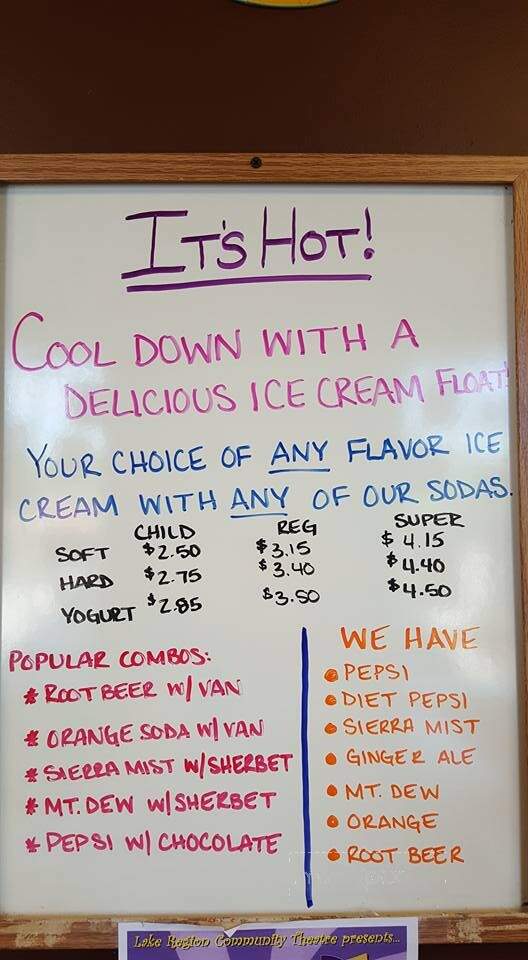 IT'S HOT!
COOL DOWN WITH A
DELICIOUS ICE CREAM FLOAT!
YOUR CHOICE OF ANY FLAVOR ICE
CREAM WITH ANY OF OUR SODAS.
CHILD REG SUPER
SOFT $2.50 $3.15 $4.15
HARD $2.75 $3.40 $4.40
YOGURT $2.85 $3.50 $4.50
POPULAR COMBOS:
* ROOT BEER W/ VAN
* ORANGE SODA W/ VAN
* SIERRA MIST W/SHERBET
* MT. DEW W/SHERBET
* PEPSI W/ CHOCOLATE
WE HAVE
• PEPSI
• DIET PEPSI
• SIERRA MIST
• GINGER ALE
• MT. DEW
• ORANGE
• ROOT BEER
Lake Region Community Theatre presents...